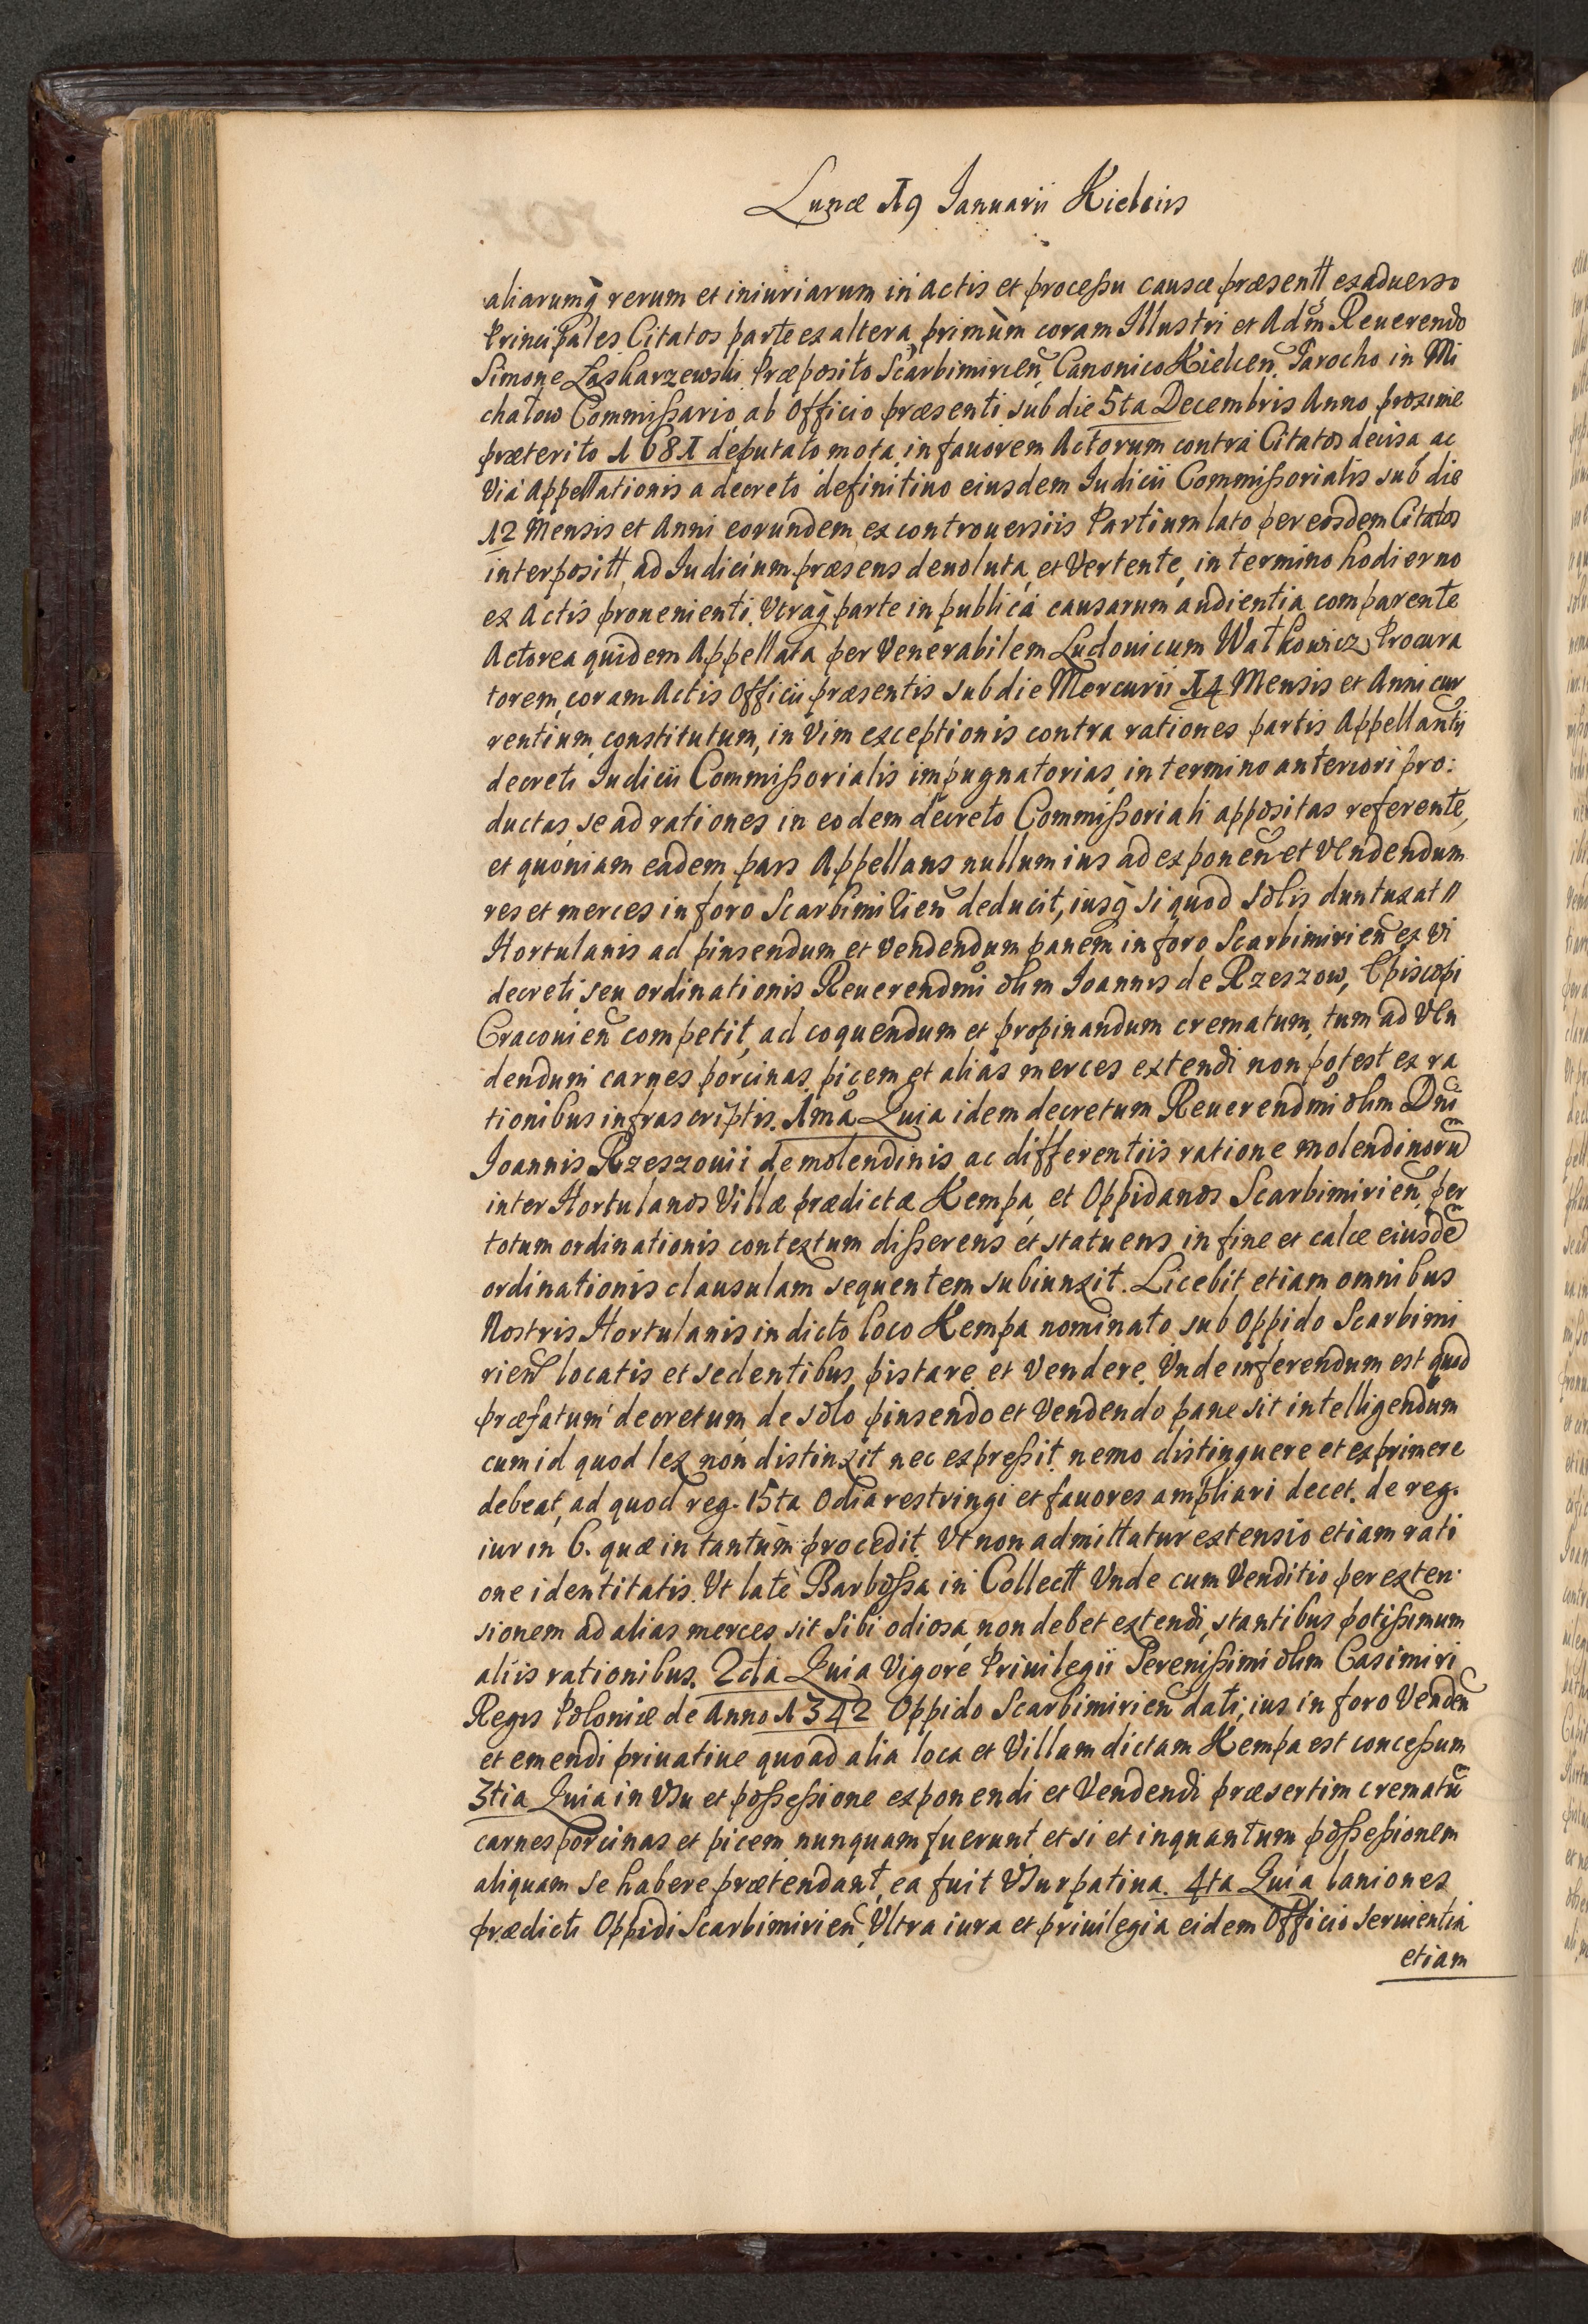 Lunæ 19 Ianuarii Kielciis
aliarumq̃ rerum et iniuriarum in actis et processu causæ præsentt ex aduerso
Principales Citatos parte ex altera, primùm coram Illustri et Adm̃ Reuerendo
Simone Laskarzewski Præposito Scarbimirien̄ Canonico Kielcen̄. Parocho in Mi
chałow Commissario, ab Officio præsenti sub die 5ta Decembris Anno proxime
præterito 1681 deputato mota, in fauorem Actorum contra Citatos decisa, ac
Via Appellationis a decreto definitiuo eiusdem Iudicii Commissorialis sub die
12 Mensis et Anni eorundem, ex controuersiis Partium lato per eosdem Citatos
interpositt, ad Iudicium præsens deuoluta, et Vertente, in termino hodierno
ex Actis prouenienti. Vtraq̃ parte in publica causarum audientia comparente
Actorea quidem Appellata per Venerabilem Ludouicum Wałkowicz Procura
torem, coram Actis Officii præsentis sub die Mercurii 14 Mensis et Anni cur
rentium constitutum, in Vim exceptionis contra rationes partis Appellantis
decreti Iudicii Commissorialis impugnatorias, in termino anteriori pro:
ductas, se ad rationes in eodem decreto Commissoriali appositas referente,
et quoniam eadem pars Appellans nullum ius ad exponen̄ et Vendendum
res et merces in foro Scarbimirien̄ deducit, iusq̃ si quod solis duntaxat //
Hortulanis ad pinsendum et Vendendum panem in foro Scarbimirien̄ ex Vi
decreti seu ordinationis Reuerendm̃i olim Ioannis de Rzeszow, Episcopi
Cracouien̄ competit, ad coquendum et propinandum crematum, tum ad Ven
dendum carnes porcinas, picem, et alias merces extendi non potest ex ra
tionibus infrascriptis. 1mã Quia idem decretum Reuerendm̃i olim Dn̄i
Ioannis Rzeszouii de molendinis ac differentiis ratione molendinorū
inter Hortulanos Villæ prædictæ Kempa, et Oppidanos Scarbimirien̄ per
totum ordinationis contextum disserens et statuens in fine et calce eiusdē
ordinationis clausulam sequentem subiunxit. Licebit etiam omnibus
Nostris Hortulanis in dicto loco Kempa nominato sub Oppido Scarbimi
rien̄ locatis et sedentibus, pistare et Vendere. Vnde inferendum est quod
præfatum decretum, de solo pinsendo et Vendendo pane sit intelligendum
cum id quod lex non distinxit nec expressit, nemo distinguere et exprimere
debeat, ad quod reg. 15ta Odia restringi et fauores ampliari decet. de reg.
iur in 6. quæ in tantum procedit, Vt non admittatur extensio etiam rati
one identitatis. Vt latè Barbossa in Collectt Vnde cum Venditio per exten
sionem ad alias merces sit Sibi odiosa, non debet extendi, stantibus potissimum
aliis rationibus. 2da Quia Vigore Priuilegii Serenissimi olim Casimiri
Regis Poloniæ de Anno 1342 Oppido Scarbimirien̄ dati, ius in foro Venden̄
et emendi priuatiue quoad alia loca et Villam dictam Kempa est concessum
3tia Quia in Vsu et possessione exponendi et Vendendi præsertim crematū
carnes porcinas et picem nunquam fuerunt et si et inquantum possessionem
aliquam se habere prætendant, ea fuit Vsurpatiua. 4ta Quia laniones
prædicti Oppidi Scarbimirien̄, Vltra iura et priuilegia eidem Officio seruientia
etiam